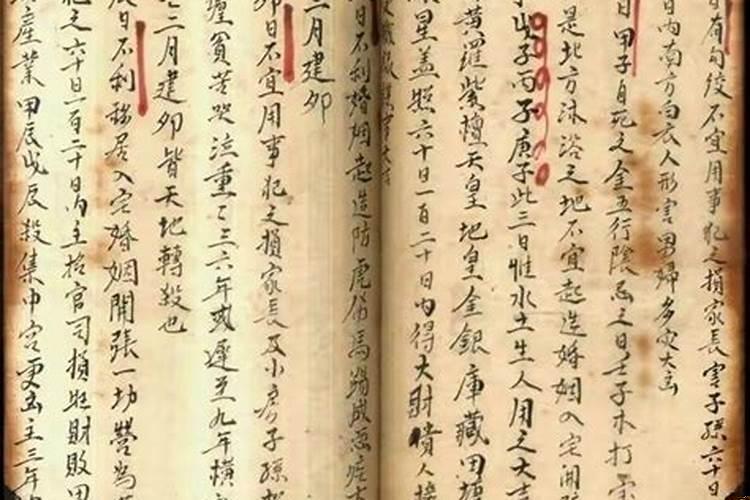 日有勾绞不宜用事犯之损家長害子孫六十日
日内南方白衣人形害男婦多灾大凶
日甲子自死之金五行陰忌之日壬子木打
是北方沐浴之地不宜起造婚姻入宅開
戊子丙子庚子此三日惟水土生人用之大吉
黄羅紫檀天皇地皇金銀庫藏田塘
星蓋照六十日一百二十日内得大財貴人接
日不利婚姻起造防虎傷馬踢成
三月建卯
卯日不宜用事犯之損家長及小房子孫
貧苦哭泣重重三六年或遲至九年横
二月建夘皆天地轉殺也
日不利移居入宅婚姻開張一切營為
犯之六十日一百二十日内主招官司損班財敗田
産業甲辰戊辰殺集中宫更凶主三年